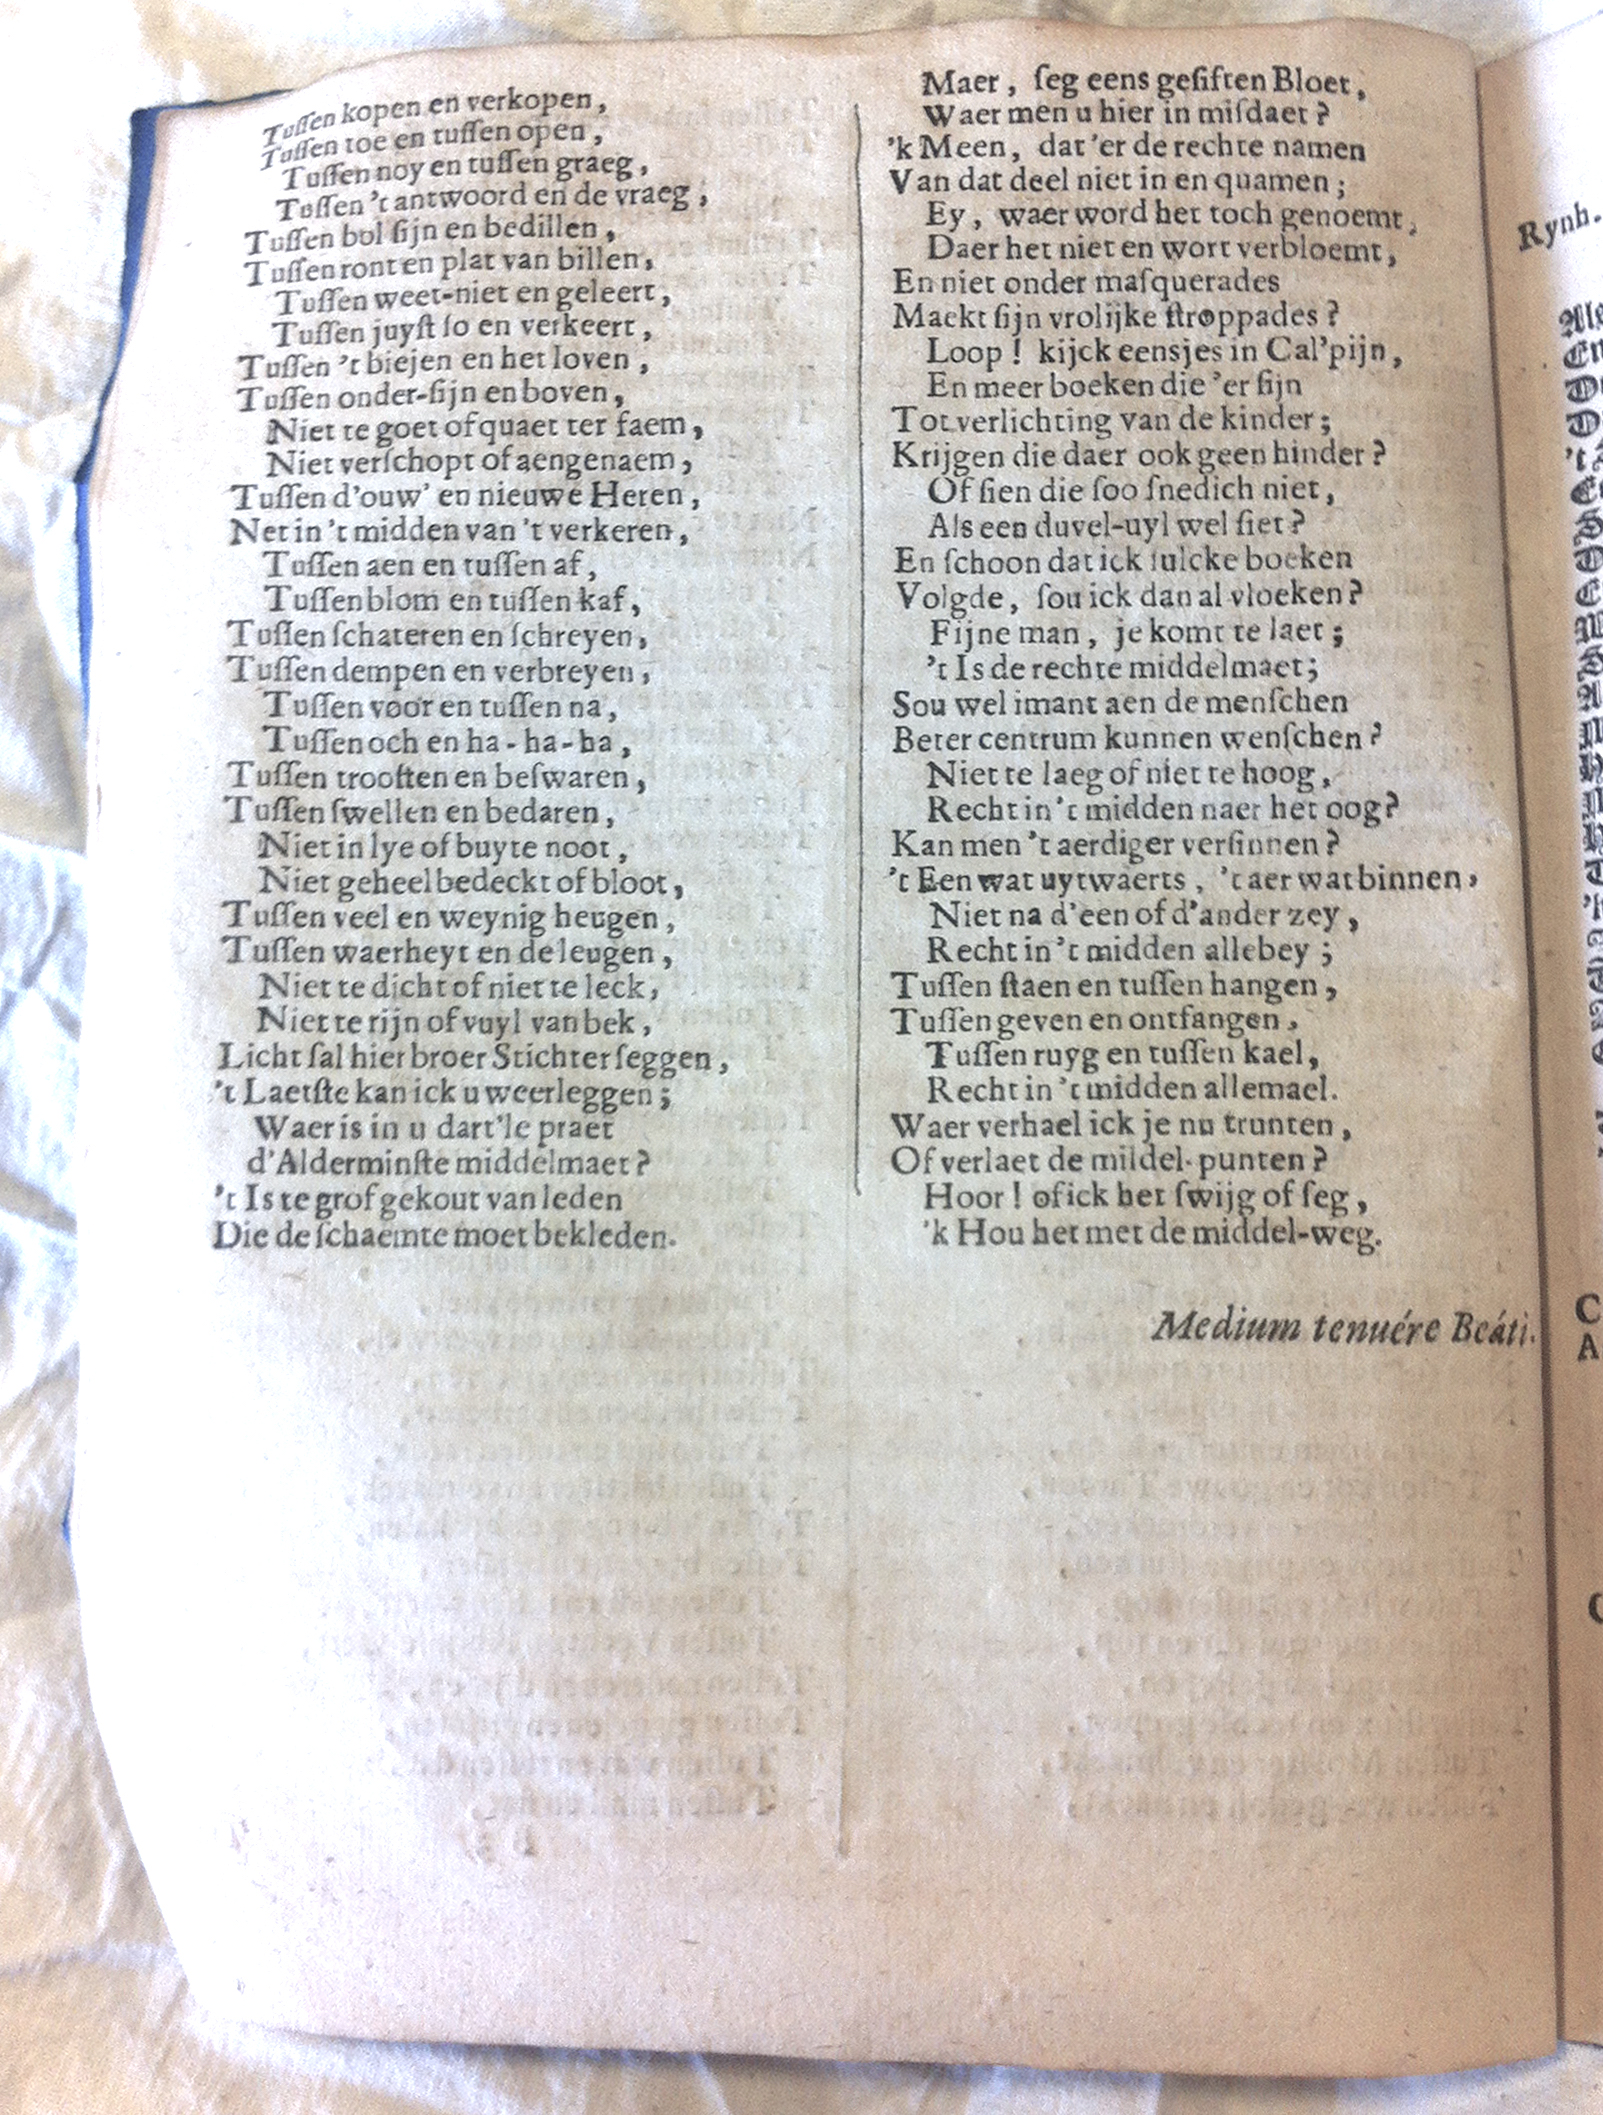 Tuſſen kopen en verkopen,
Tuſſen toe en tuſſen open,
Tuſſen noy en tuſſen graeg,
Tuſſen 't antwoord en de vraeg,
Tuſſen bol ſijn en bedillen,
Tuſſen ront en plat van billen,
Tuſſen weet-niet en geleert,
Tuſſen juyſt ſo en verkeert,
Tuſſen 't biejen en het loven,
Tuſſen onder-ſijn en boven,
Niet te goet of quaet ter faem,
Niet verſchopt of aengenaem,
Tuſſen d'ouw' en nieuwe Heren,
Net in 't midden van 't verkeren,
Tuſſen aen en tuſſen af,
Tuſſen blom en tuſſen kaf,
Tuſſen ſchateren en ſchreyen,
Tuſſen dempen en verbreyen,
Tuſſen voor en tuſſen na,
Tuſſen och en ha-ha-ha,
Tuſſen trooſten en beſwaren,
Tuſſen ſwellen en bedaren,
Niet in lye of buyte noot,
Niet geheel bedeckt of bloot,
Tuſſen veel en weynig heugen,
Tuſſen waerheyt en de leugen,
Niet te dicht of niet te leck,
Niet te rijn of vuyl van bek,
Licht ſal hier broer Stichter ſeggen,
't Laetſte kan ick u weerleggen;
Waer is in u dart'le praet
d'Alderminſte middelmaet?
't Is te grof gekout van leden
Die de ſchaemte moet bekleden.
Maer, ſeg eens geſiften Bloet,
Waer men u hier in miſdaet?
'k Meen, dat 'er de rechte namen
Van dat deel niet in en quamen;
Ey, waer word het toch genoemt,
Daer het niet en wort verbloemt,
En niet onder maſquerades
Maekt ſijn vrolijke ſtroppades?
Loop! kijck eensjes in Cal'pijn,
En meer boeken die 'er ſijn
Tot verlichting van de kinder;
Krijgen die daer ook geen hinder?
Of ſien die ſoo ſnedich niet,
Als een duvel-uyl wel ſiet?
En ſchoon dat ick ſulcke boeken
Volgde, ſou ick dan al vloeken?
Fijne man, je komt te laet;
't Is de rechte middelmaet;
Sou wel imant aen de menſchen
Beter centrum kunnen wenſchen?
Niet te laeg of niet te hoog,
Recht in 't midden naer het oog?
Kan men 't aerdiger verſinnen?
't Een wat uytwaerts, 't aer wat binnen,
Niet na d'een of d'ander zey,
Recht in 't midden allebey;
Tuſſen ſtaen en tuſſen hangen,
Tuſſen geven en ontfangen,
Tuſſen ruyg en tuſſen kael,
Recht in 't midden allemael.
Waer verhael ick je nu trunten,
Of verlaet de middel-punten?
Hoor! of ick het ſwijg of ſeg,
'k Hou het met de middel-weg.
Medium tenuére Beáti.
Rynh.